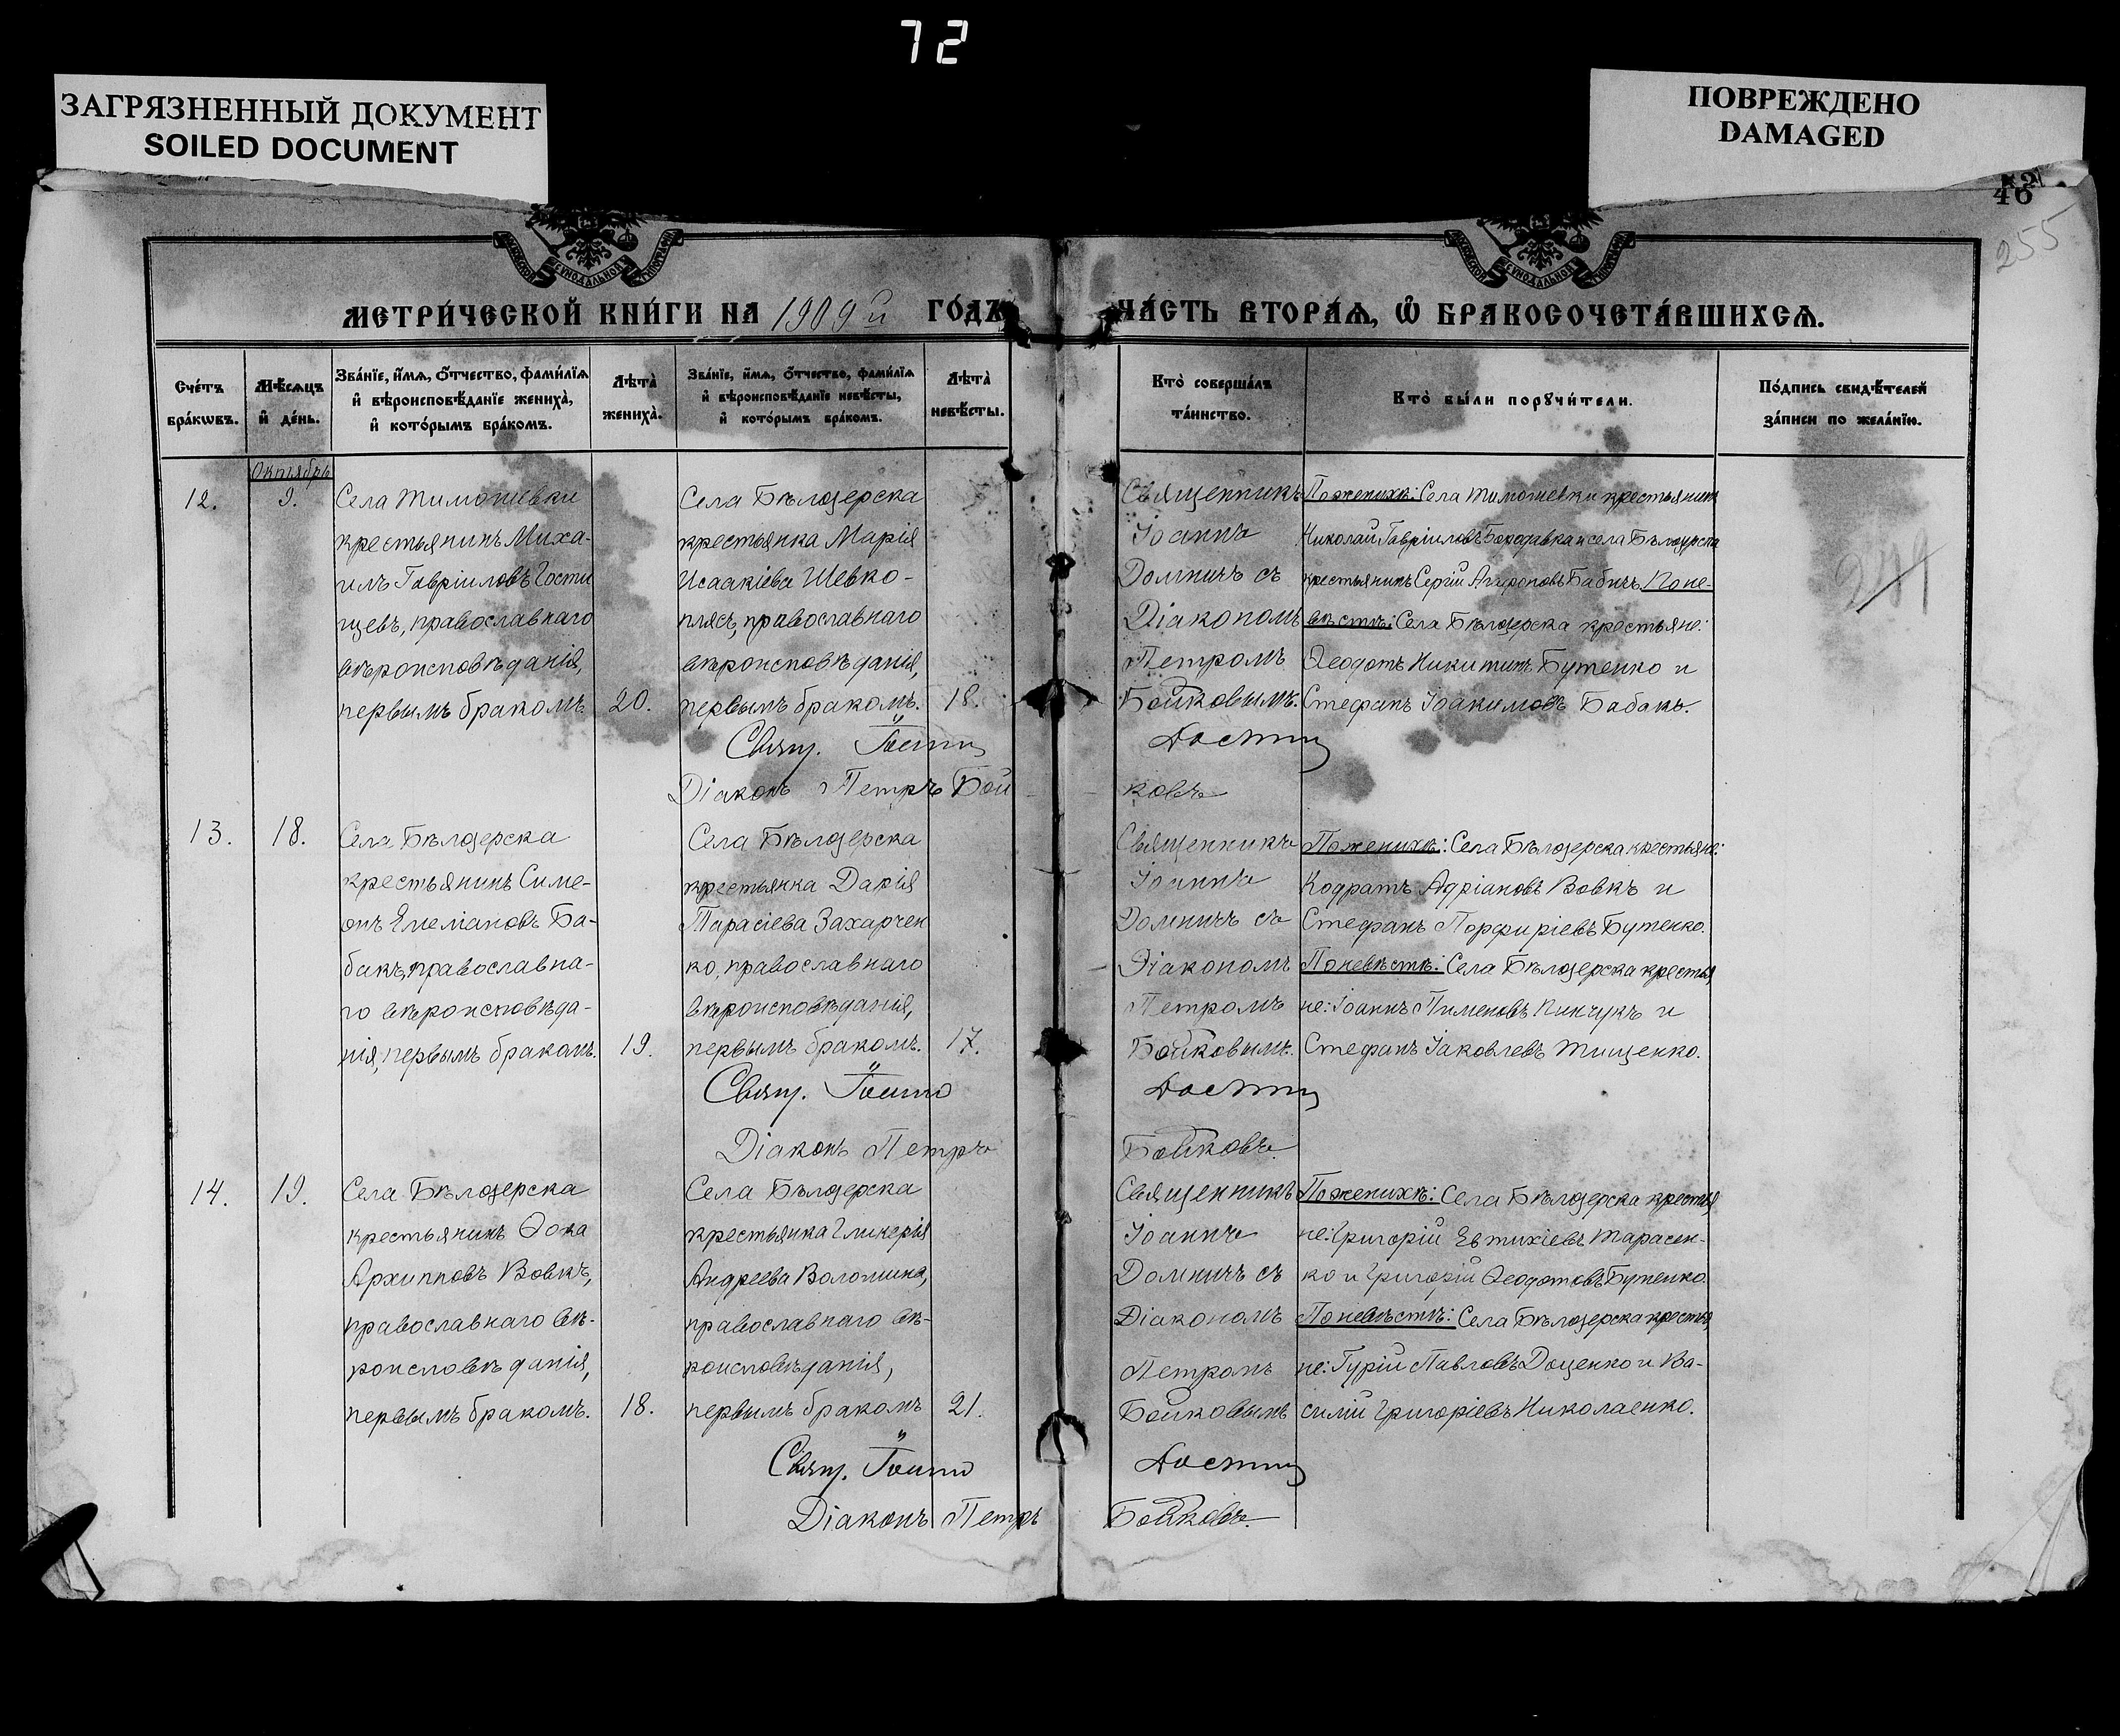 72
ЗАГРЯЗНЕННЫЙ ДОКУМЕНТ
SOILED DOCUMENT
ПОВРЕЖДЕНО
DAMAGED
46
255
МЕТРИ́ЧЕСКОЙ КНИ́ГИ НА 1909й ГО́ДЪ
ЧА́СТЬ ВТОРА́Ѧ, Ѡ҆ БРАКОСОЧЕТА́ВШИХСѦ.
Сче́тъ бра́кѡвъ.
Мѣ́сѧцъ и҆ де́нь.
Зва́нїе, и҆́мѧ, ѻ҆́тчество, фамѝлїѧ
и҆ вѣроисповѣ́данїе жениха̀,
и҆ кото́рымъ бра́комъ.
Лѣта̀ жениха̀.
Зва́нїе, и҆́мѧ, ѻ҆́тчество, фамѝлїѧ
и҆ вѣроисповѣ́данїе невѣ́сты,
и҆ кото́рымъ бра́комъ.
Лѣта̀ невѣ́сты.
Кто̀ соверша́лъ та́инство.
Кто̀ бы́ли порꙋчи́тели.
По́дпись свидѣ́телей
за́писи по жела́нїю.
Октябрь
12.
9.
Села Тимошевки
крестьянинъ Миха-
илъ Гавріиловъ Гости
щевъ, православнаго
вѣроисповѣданія,
первымъ бракомъ
20.
Села Бѣлозерска
крестьянка Марія
Исаакіева Шевко-
плясъ, православнаго
вѣроисповѣданія,
первымъ бракомъ.
18.
Священникъ
Іоаннъ
Домничъ съ
Діакономъ
Петромъ
Бойковымъ.
По женихѣ: Села Тимошевки крестьянинъ
Николай Гавріиловъ Бородавка и села Бѣлозерска
крестьянинъ Сергій Бабичъ. По не-
вѣстѣ: Села Бѣлозерска крестьяне:
Ѳеодотъ Никитинъ Бутенко и
Стефанъ Іоакимовъ Бабакъ.
Свящ.
Діаконъ Петръ Бой
ковъ
13.
18.
Села Бѣлозерска
крестьянинъ Симе-
онъ Емеліановъ Ба-
бакъ, православна-
го вѣроисповѣда-
нія, первымъ бракомъ.
19.
Села Бѣлозерска
крестьянка Дарія
Тарасіева Захарчен
ко, православнаго
вѣроисповѣданія,
первымъ бракомъ.
17.
Священникъ
Іоаннъ
Домничъ съ
Діакономъ
Петромъ
Бойковымъ.
По женихѣ: Села Бѣлозерска крестьяне:
Кодратъ Адріановъ Вовкъ и
Стефанъ Порфиріевъ Бутенко.
По невѣстѣ: Села Бѣлозерска крестья
не: Іоаннъ Пименовъ Кинчукъ и
Стефанъ Іаковлевъ Тищенко.
Свящ.
Діаконъ Петръ
Бойковъ.
14.
19.
Села Бѣлозерска
крестьянинъ Ѳока
Архипповъ Вовкъ,
православнаго вѣ-
роисповѣданія,
первымъ бракомъ.
18.
Села Бѣлозерска
крестьянка Гликерія
Андреева Волошина,
православнаго вѣ-
роисповѣданія,
первымъ бракомъ
21.
Священникъ
Іоаннъ
Домничъ съ
Діакономъ
Петромъ
Бойковымъ
По женихѣ: Села Бѣлозерска крестья
не: Григорій Евтихіевъ Тарасен-
ко и Григорій Ѳеодотовъ Бутенко.
По невѣстѣ: Села Бѣлозерска крестья
не: Гурій Павловъ Доценко и Ва-
силій Григоріевъ Николаенко.
Свящ.
Діаконъ Петръ
Бойковъ.